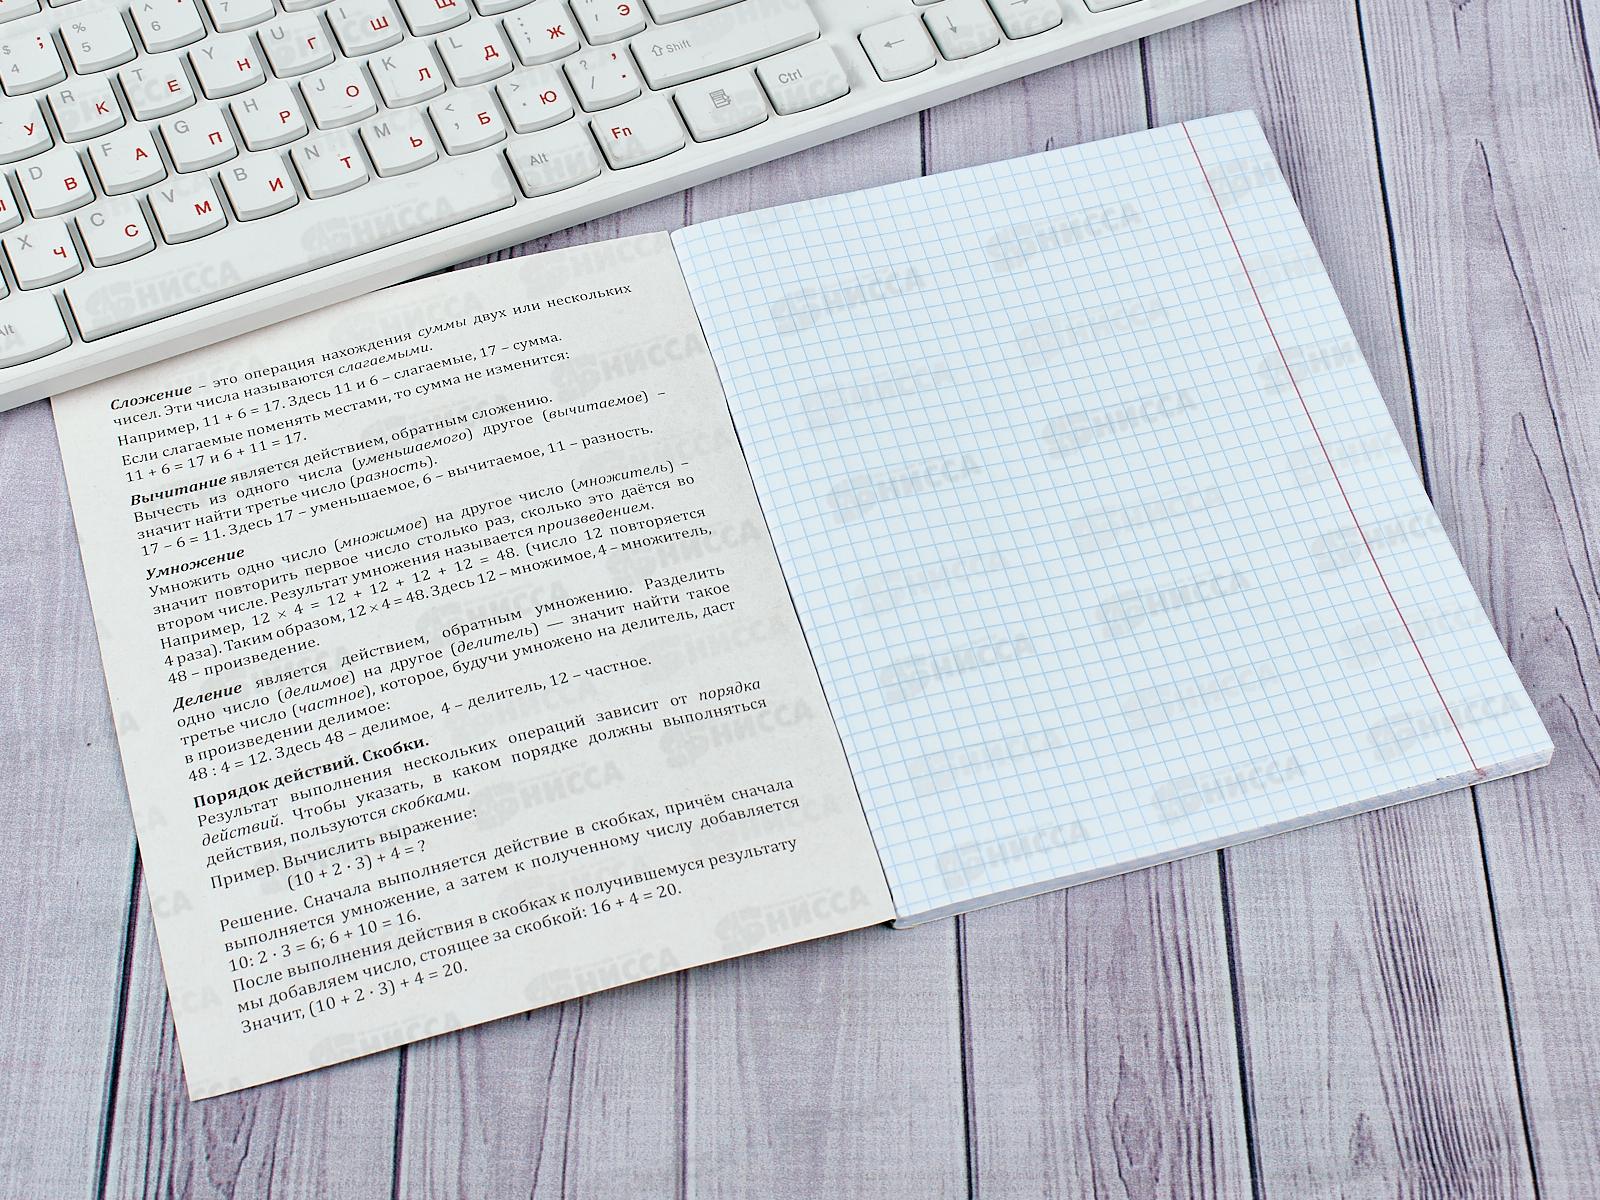 Сложение – это операция нахождения суммы двух или нескольких
чисел. Эти числа называются слагаемыми.
Например, 11 + 6 = 17. Здесь 11 и 6 – слагаемые, 17 – сумма.
Если слагаемые поменять местами, то сумма не изменится:
11 + 6 = 17 и 6 + 11 = 17.
Вычитание является действием, обратным сложению.
Вычесть из одного числа (уменьшаемого) другое (вычитаемое) –
значит найти третье число (разность).
17 – 6 = 11. Здесь 17 – уменьшаемое, 6 – вычитаемое, 11 – разность.
Умножение
Умножить одно число (множимое) на другое число (множитель) –
значит повторить первое число столько раз, сколько это даётся во
втором числе. Результат умножения называется произведением.
Например, 12 × 4 = 12 + 12 + 12 + 12 = 48. (число 12 повторяется
4 раза). Таким образом, 12 × 4 = 48. Здесь 12 – множимое, 4 – множитель,
48 – произведение.
Деление является действием, обратным умножению. Разделить
одно число (делимое) на другое (делитель) — значит найти такое
третье число (частное), которое, будучи умножено на делитель, даст
в произведении делимое:
48 : 4 = 12. Здесь 48 – делимое, 4 – делитель, 12 – частное.
Порядок действий. Скобки.
Результат выполнения нескольких операций зависит от порядка
действий. Чтобы указать, в каком порядке должны выполняться
действия, пользуются скобками.
Пример. Вычислить выражение:
(10 + 2 · 3) + 4 = ?
Решение. Сначала выполняется действие в скобках, причём сначала
выполняется умножение, а затем к полученному числу добавляется
10: 2 · 3 = 6; 6 + 10 = 16.
После выполнения действия в скобках к получившемуся результату
мы добавляем число, стоящее за скобкой: 16 + 4 = 20.
Значит, (10 + 2 · 3) + 4 = 20.